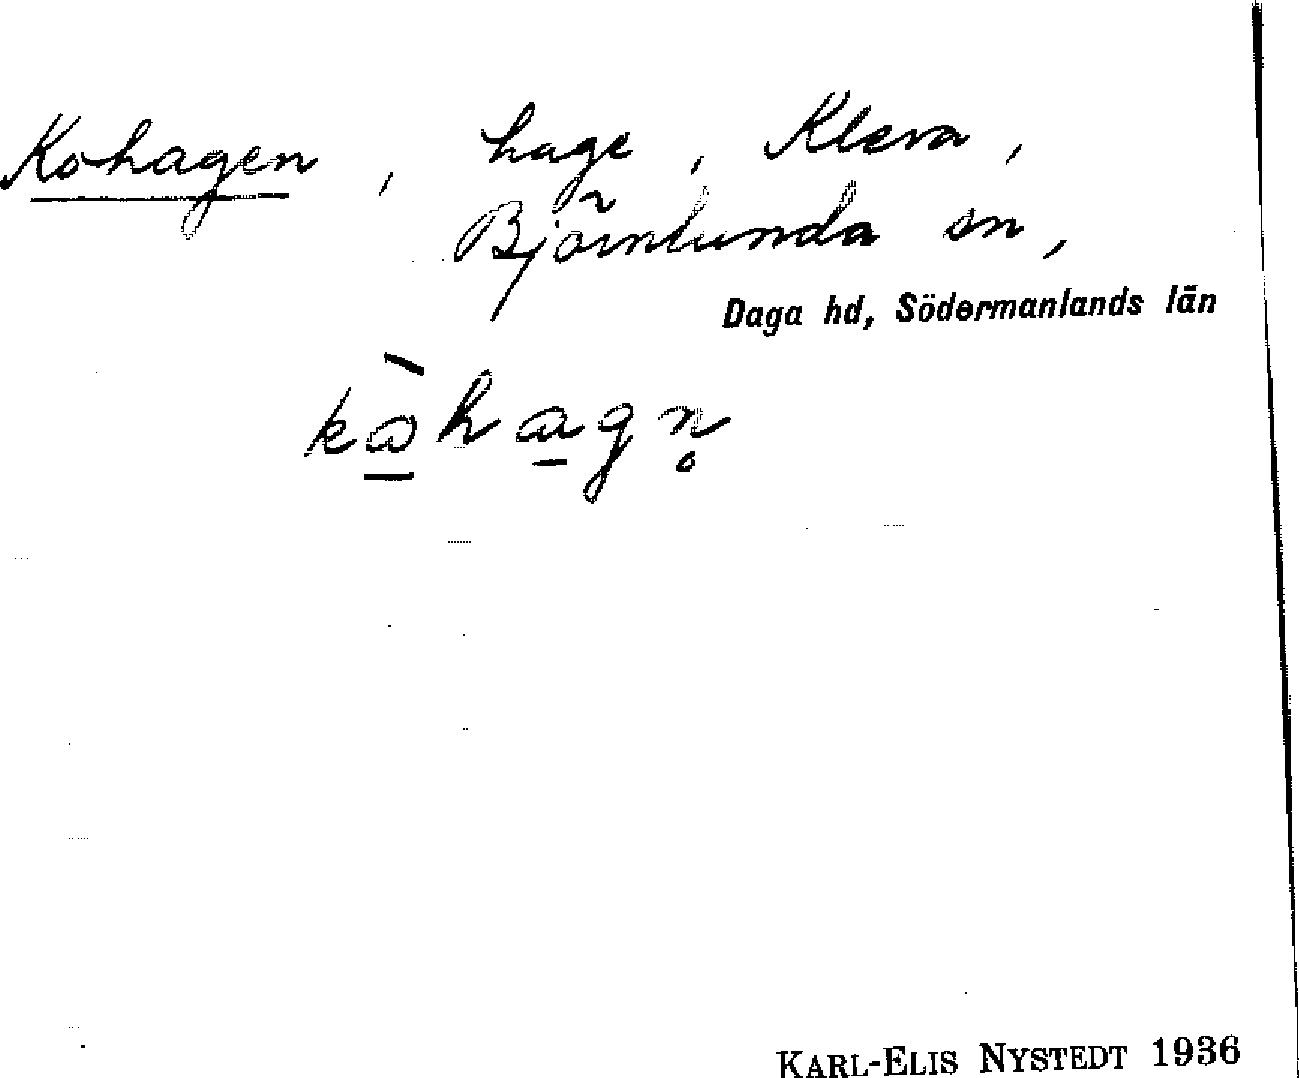 Kohagen, hage, Kleva,
Björnlunda sn,
Daga hd, Södermanlands län
kὼ̲hα̲gn̥
KARL-ELIS NYSTEDT 1936